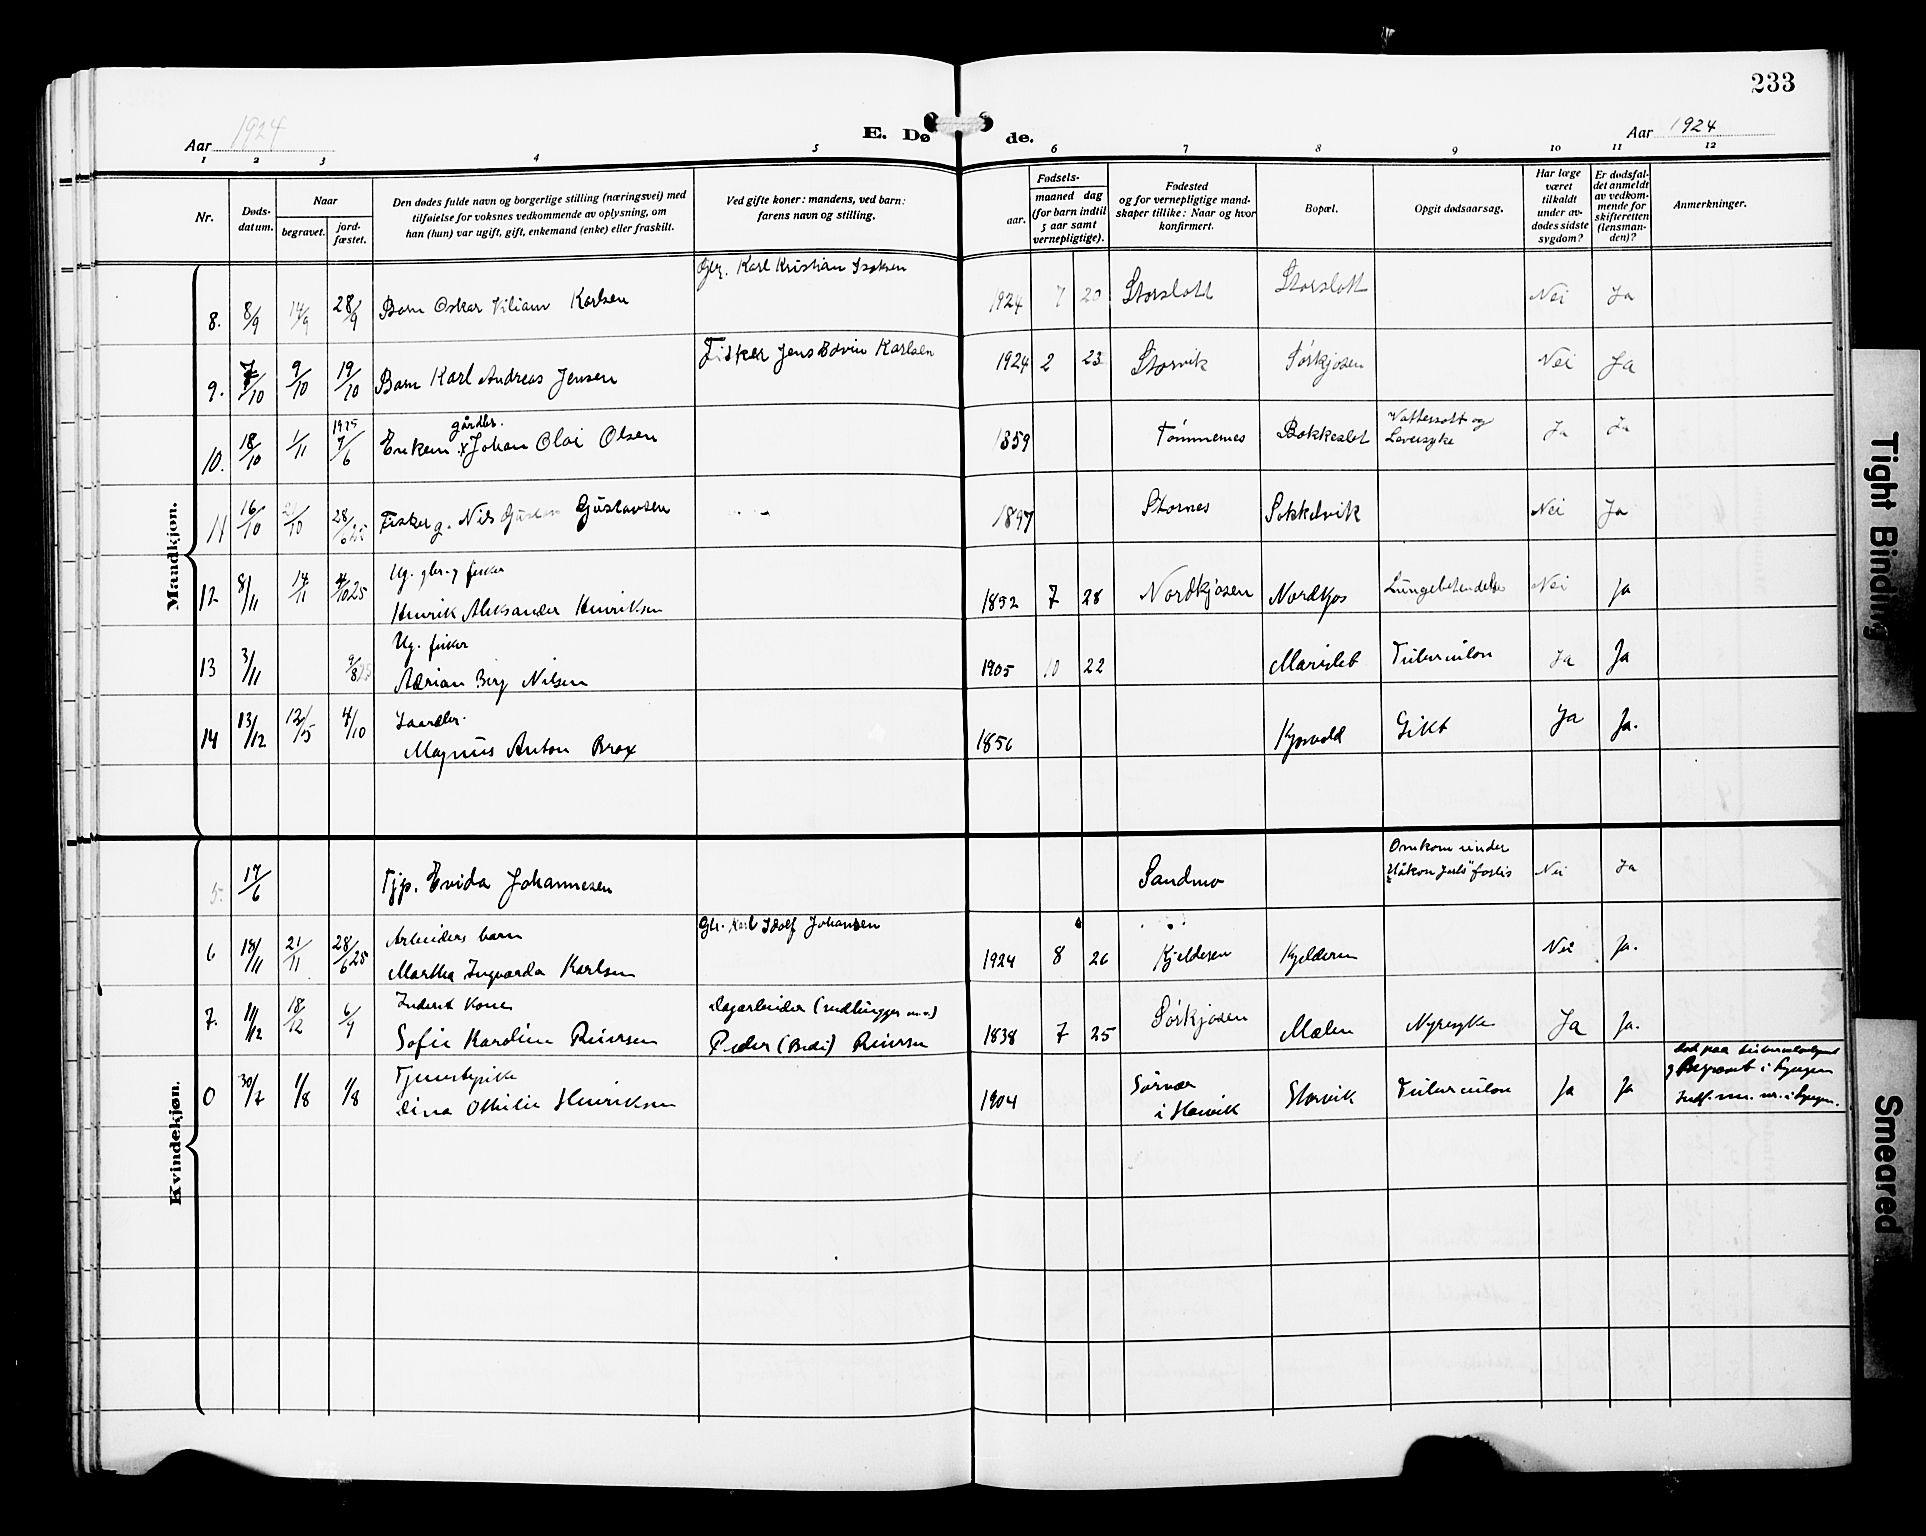 233
Aar 1924
E. Døde.
Aar 1924
1 2 3 4 5 6 7 8 9 10 11 12
Nr.
Døds-datum.
Naar
begravet.
jord-fæstet.
Den dødes fulde navn og borgerlige stilling (næringsvei) med
tilføielse for voksnes vedkommende av oplysning, om
han (hun) var ugift, gift, enkemand (enke) eller fraskilt.
Ved gifte koner: mandens, ved barn:
farens navn og stilling.
Fødsels-
aar.
maaned dag
(for barn indtil
5 aar samt
vernepligtige).
Fødested
og for vernepligtige mand-
skaper tillike: Naar og hvor
konfirmert.
Bopæl.
Opgit dødsaarsag.
Har læge
været
tilkaldt
under av-
dødes sidste
sygdom?
Er dødsfal-
det anmeldt
av vedkom-
mende for
skifteretten
(lensman-
den)?
Anmerkninger.
Mandkjøn.
Gbr. Karl Kristian Isaksen
8. 8/9 14/9 28/9 Barn Oskar Viliam Karlsen 1924 7 20 Storslott Storslott Nei Ja
Fisker Jens Edvin Karlsen
9. 7/10 9/10 19/10 Barn Karl Andreas Jensen 1924 2 23 Storvik Sørkjosen Nei Ja
1925 gårdbr. Vattersott og
10. 18/10 1/11 7/6 Enkem. Johan Olai Olsen 1859 Tømmernes Bakkeslet Leversyke Ja Ja
11 16/10 28/6 25 Fisker g. Nils Gustav Gustavsen 1897 Stornes Sokkelvik Nei Ja
Ug. gbr. g fisker
12 8/11 14/11 4/10 25 Henrik Aleksander Henriksen 1892 7 28 Nordkjosen Nordkjos Lungebetendelse Nei Ja
Ug. fisker
13 3/11 9/8 25 Adrian Berg Nilsen 1905 10 22 Marislet Tuberculon Ja Ja
Gaardbr.
14 13/12 12/5 4/10 Magnus Anton Brox 1856 Gikt Ja Ja.
Kvindekjøn.
Omkom under
5. 17/6 Tjp. Evida Johannesen Sandmo "Håkon Jarls" forlis Nei Ja
Arbeiders barn Gbr. Karl Idolf Johansen
6 19/11 21/11 28/6 25 Martha Ingvarda Karlsen 1924 8 26 Kjelderen Kjelderen Nei Ja.
Inderst Kone Dagarbeider
7. 11/12 18/12 6/9 Sofie Karoline Reiersen Peder Reiersen 1838 7 25 Sørkjosen Mælen Nyresyke Ja Ja.
Tjenestepike
0 30/7 1/8 1/8 Lina Othilie Henriksen 1904 i Storvik Storvik Tuberculon Ja Ja
Død paa
g Begravet i Lyngen
Tight Binding
Smeared